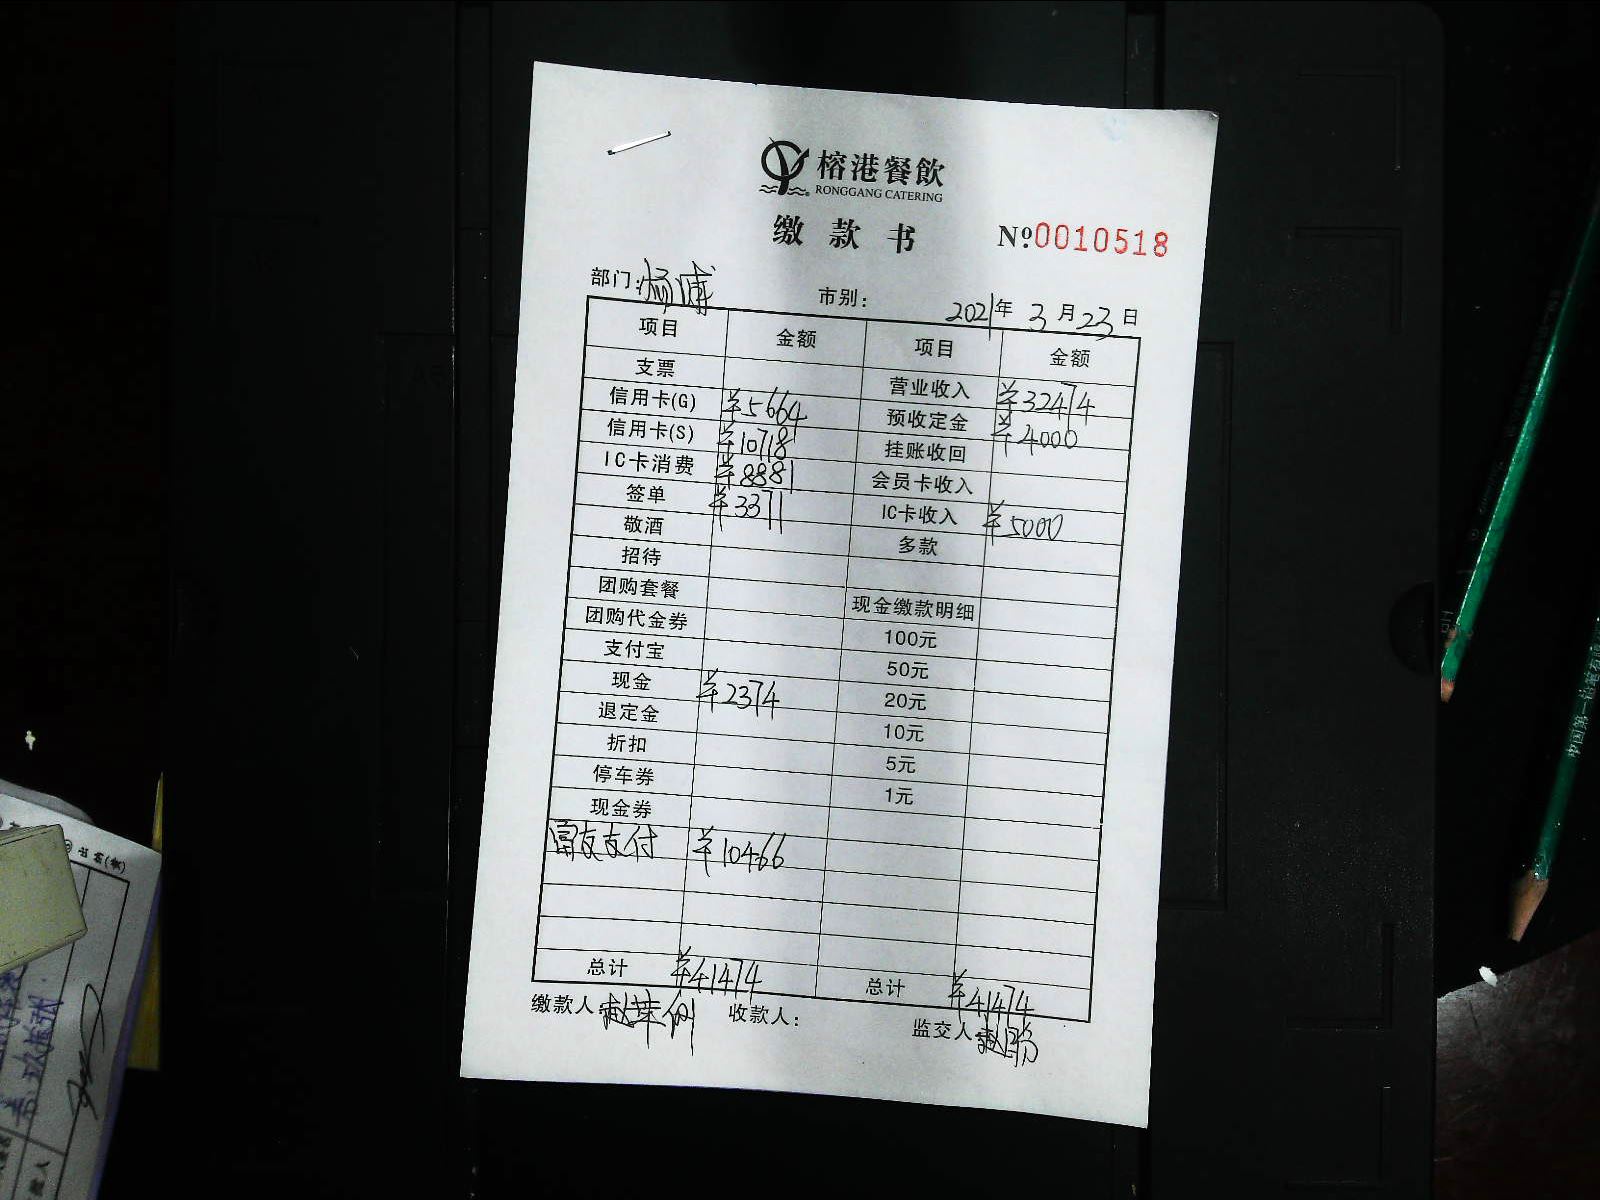 榕港餐飲
RONGGANG CATERING
缴款书 №0010518
部门: 杨浦 市别: 2021年3月23日
项目 金额 项目 金额
支票 营业收入 ¥32474
信用卡(G) ¥5664 预收定金 ¥4000
信用卡(S) ¥10718 挂账收回
IC卡消费 ¥8881 会员卡收入
签单 ¥3371 IC卡收入 ¥5000
敬酒 多款
招待
团购套餐 现金缴款明细
团购代金券 100元
支付宝 50元
现金 ¥2374 20元
退定金 10元
折扣 5元
停车券 1元
现金券
富友支付 ¥10466
总计 ¥41474 总计 ¥41474
缴款人: 收款人: 监交人
中国第一铅笔有